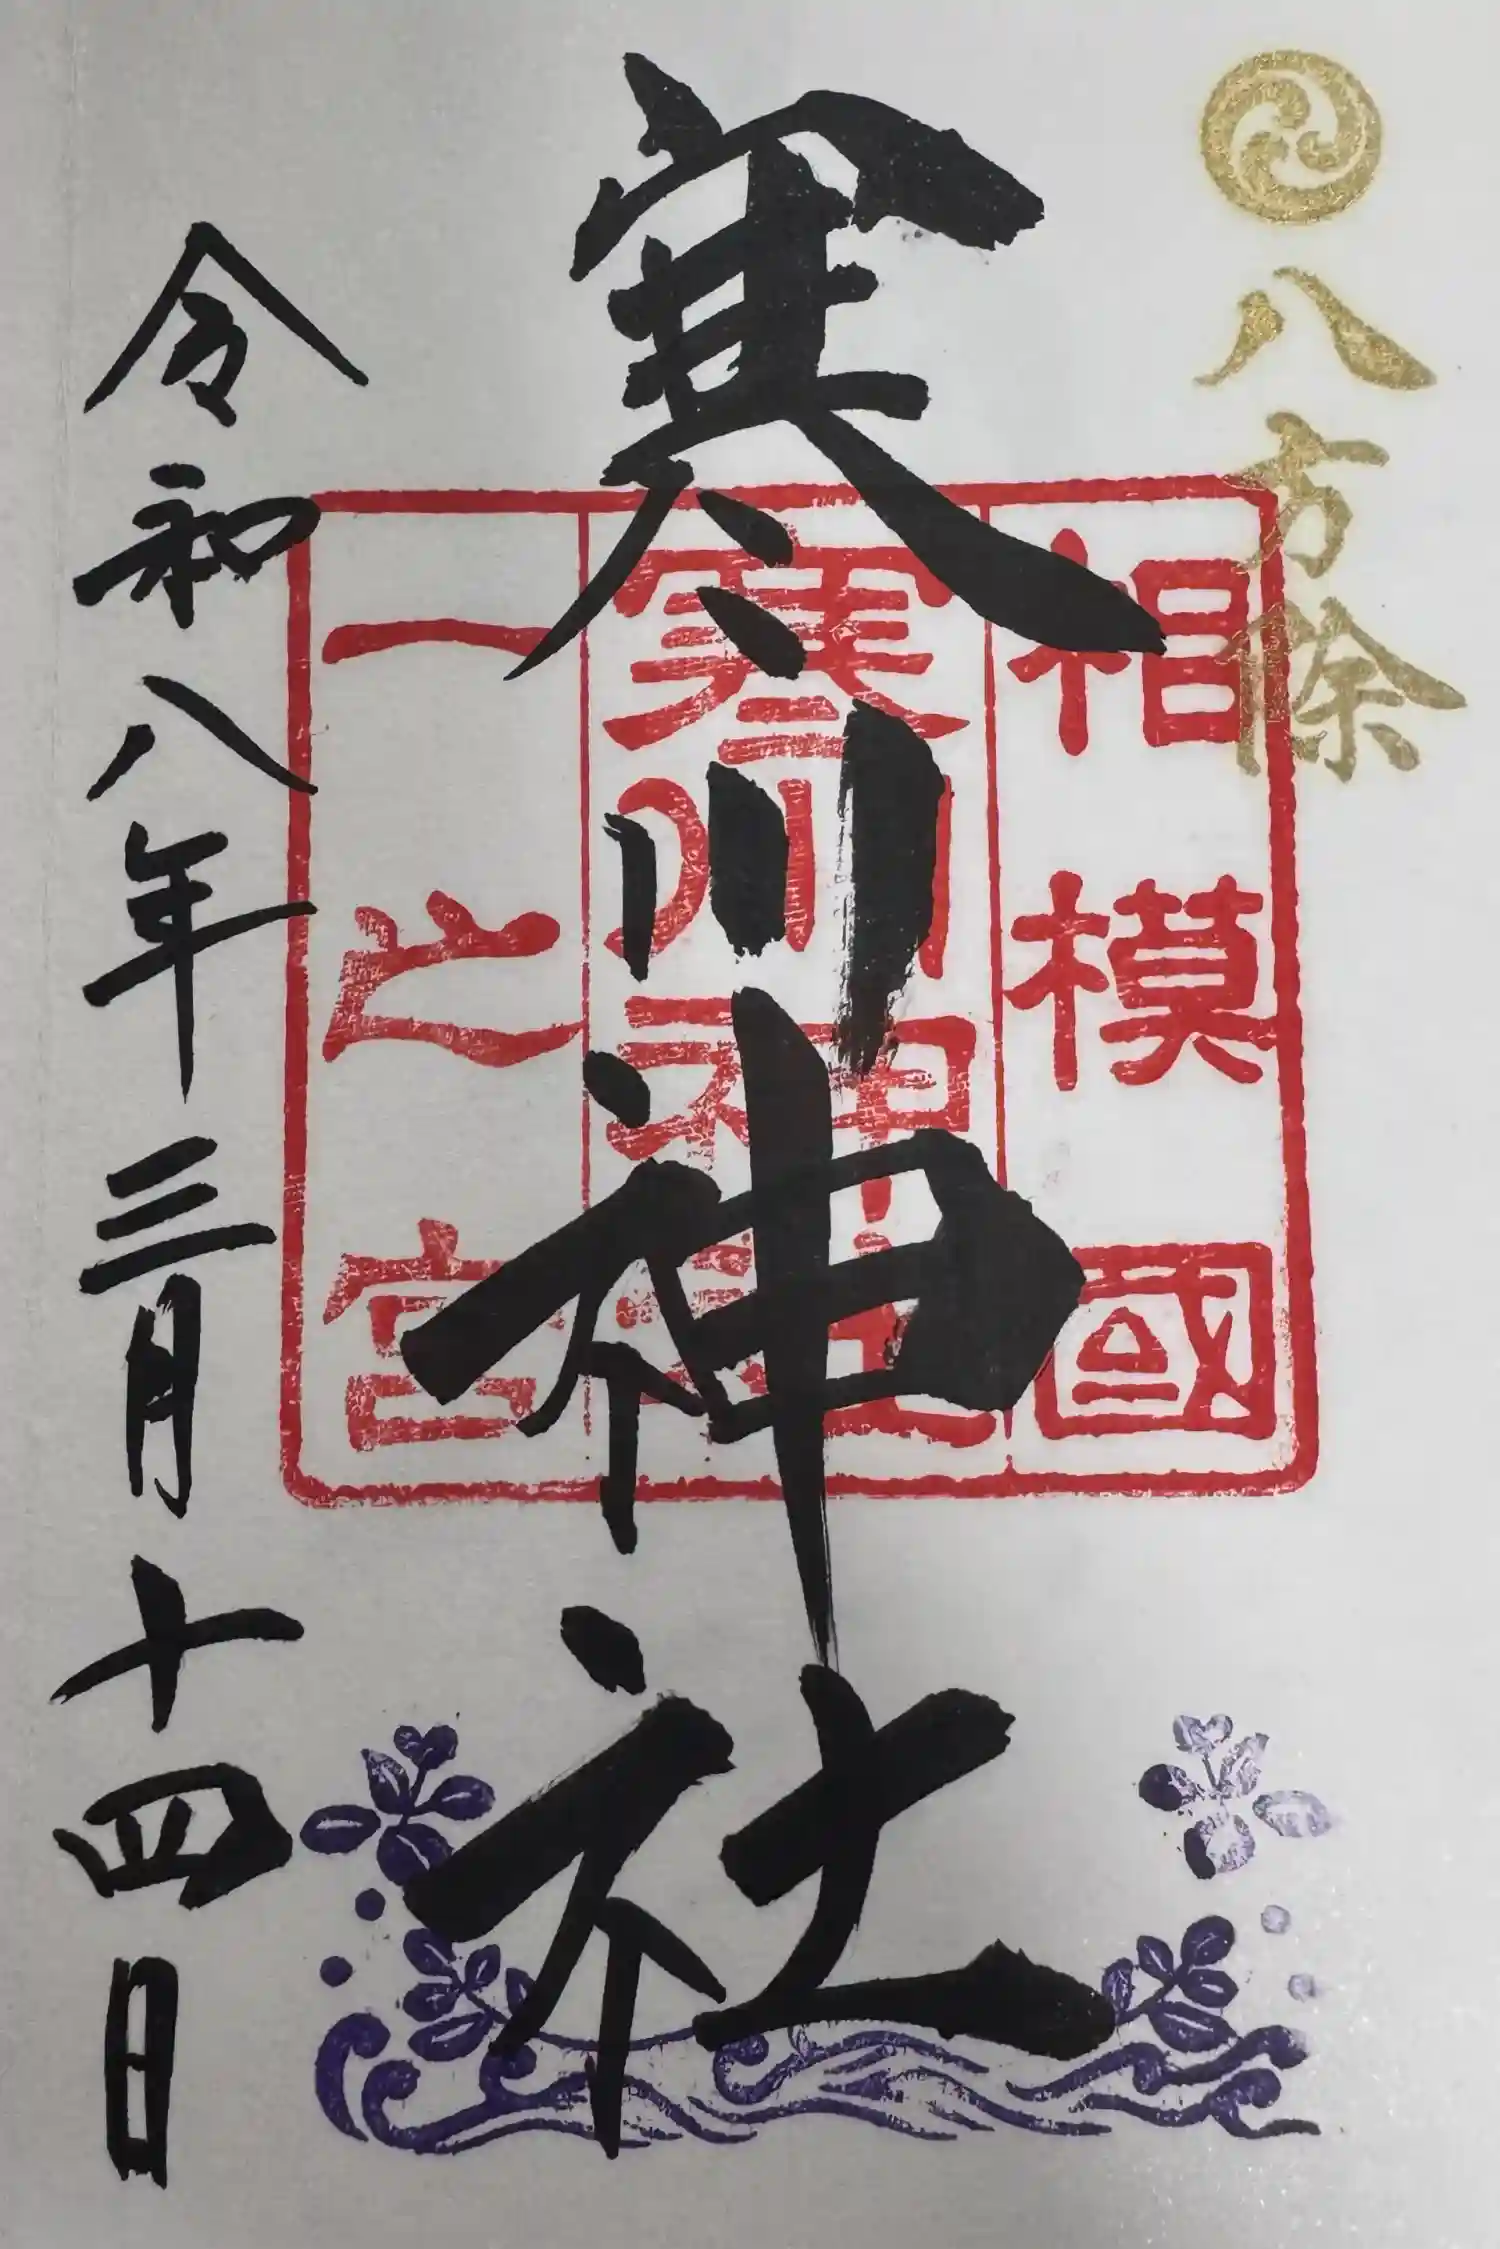 八方除
寒川神社
相模國
寒川神社
一之宮
令和八年三月十四日